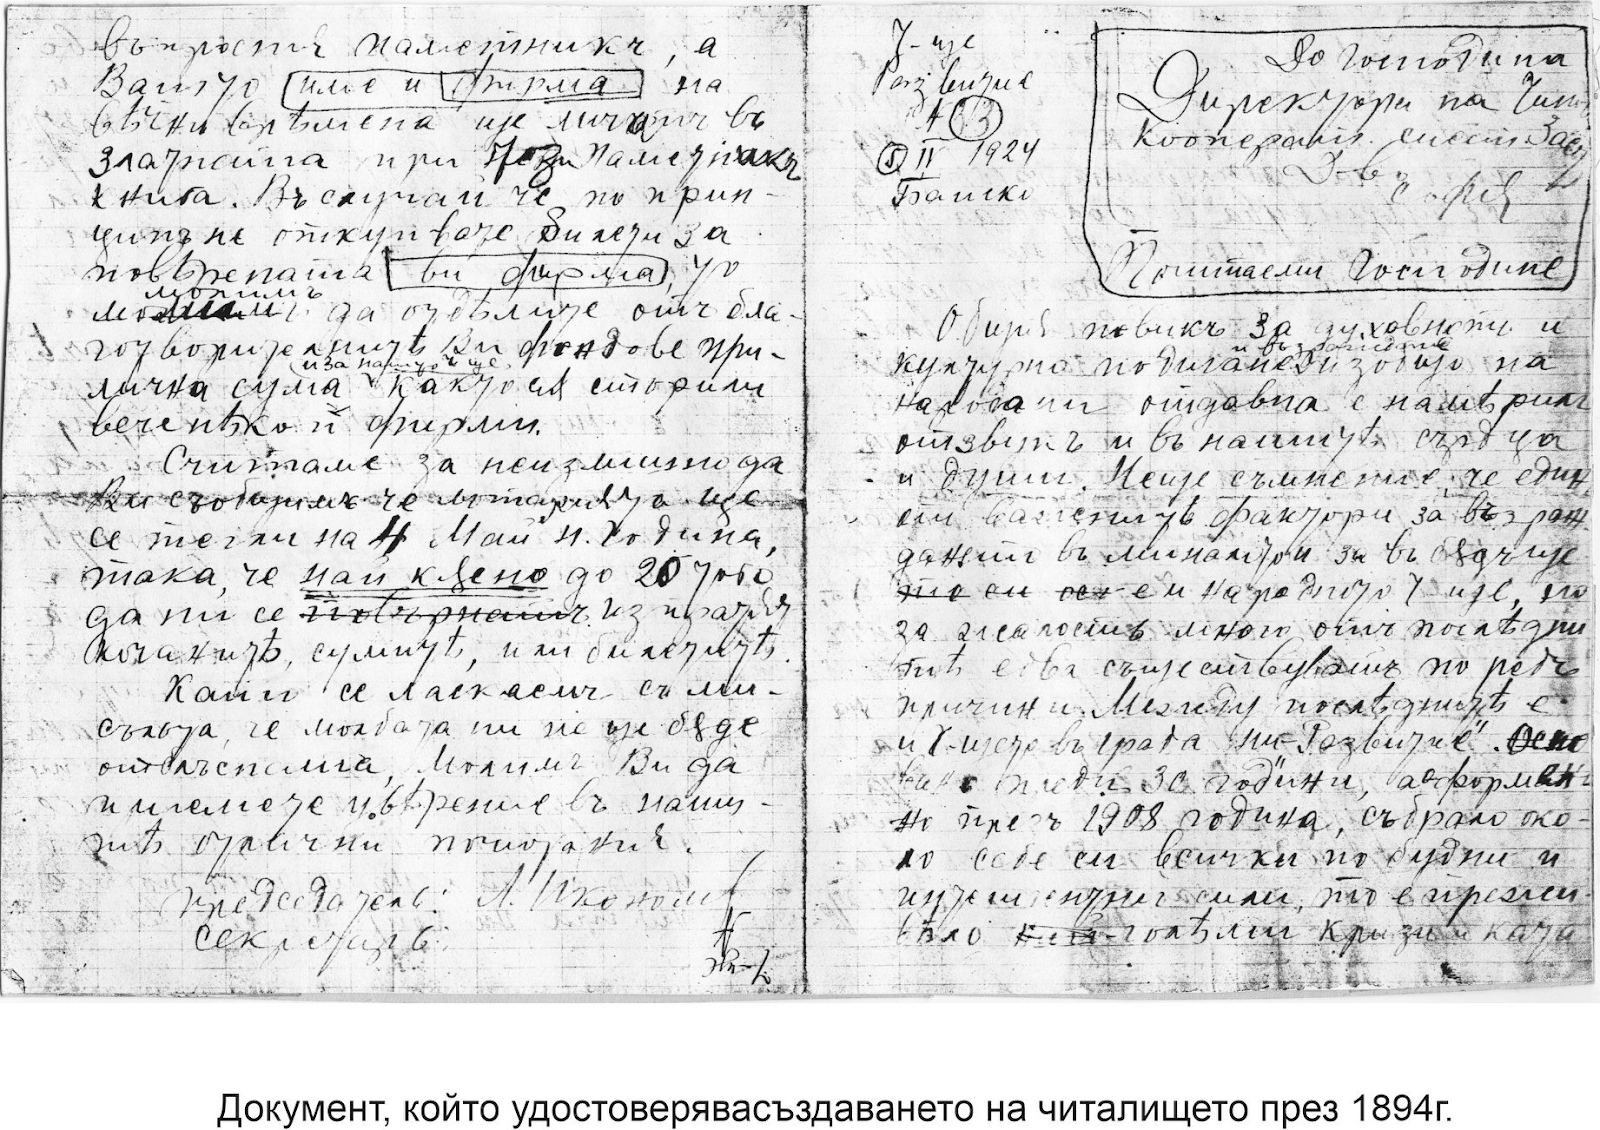 въпросния паметникъ, а
Вашето име и фирма на
вѣчни врѣмена ще личатъ въ
златната при този паметникъ
книга. Въ случай че по прин-
ципъ не откупвате билети за
повѣрената Ви фирма, то
молимъ
да отдѣлите отъ бла-
готворителнитѣ Ви фондове при-
и за нашето ч-ще,
лична сума както сѫ сторили
вече нѣкой фирми.
Считаме за неизлишно да
Ви съобщимъ че лотарията ще
се тегли на 4 Май н. година,
така, че най кѫсно до 20 того
да ни се повърнатъ изпратѫтъ
кочанитѣ, сумитѣ, или билетитѣ.
Като се ласкаемъ съ ми-
сълъта, че молбата ни не ще бѫде
отблъсната, Молимъ Ви да
приемете увѣрение въ наши-
тѣ отлични почитания.
Председатель: Л. Икономов
Секретаръ:
Ч-ще
Развитие
№ 3
5 II 1924
Банско
До Господина
Директора на
Кооперат. спест. Заст.
Д-во
София
Почитаеми Господине
Общия повикъ за духовното и
и възпитание
културно подигане изобщо на
народа ни отдавна е намѣрилъ
отзвукъ и въ нашитѣ сърдца
и души. Неще съмнение, че един
от важнитѣ фактори за възраж
данёто въ миналото за въ бѫдуще
то си е и народното ч-ще, но
за жалость много отъ послѣдни
тѣ едва съществуватъ по редъ
причини. Между послѣднитѣ е
и Ч-щето въ града ни "Развитие". Осно
вано преди 30 години, а реформира-
но презъ 1908 година, събрало око-
ло себе си всички по будни и
интелигентни сили, то е прежи-
вѣло най-голѣми кризи и ката
Документ, който удостоверявасъздаването на читалището през 1894г.